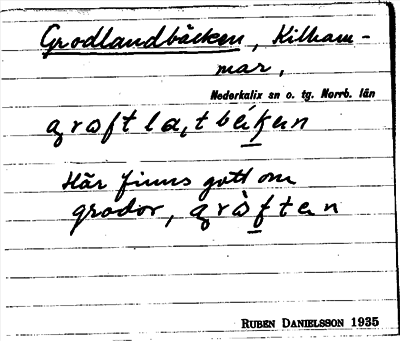 Grodlandbäcken, Kilham-
mar,
Nederkalix sn o. tg. Norrb. län
Här finns gott om
grodor,
RUBEN DANIELSSON 1935